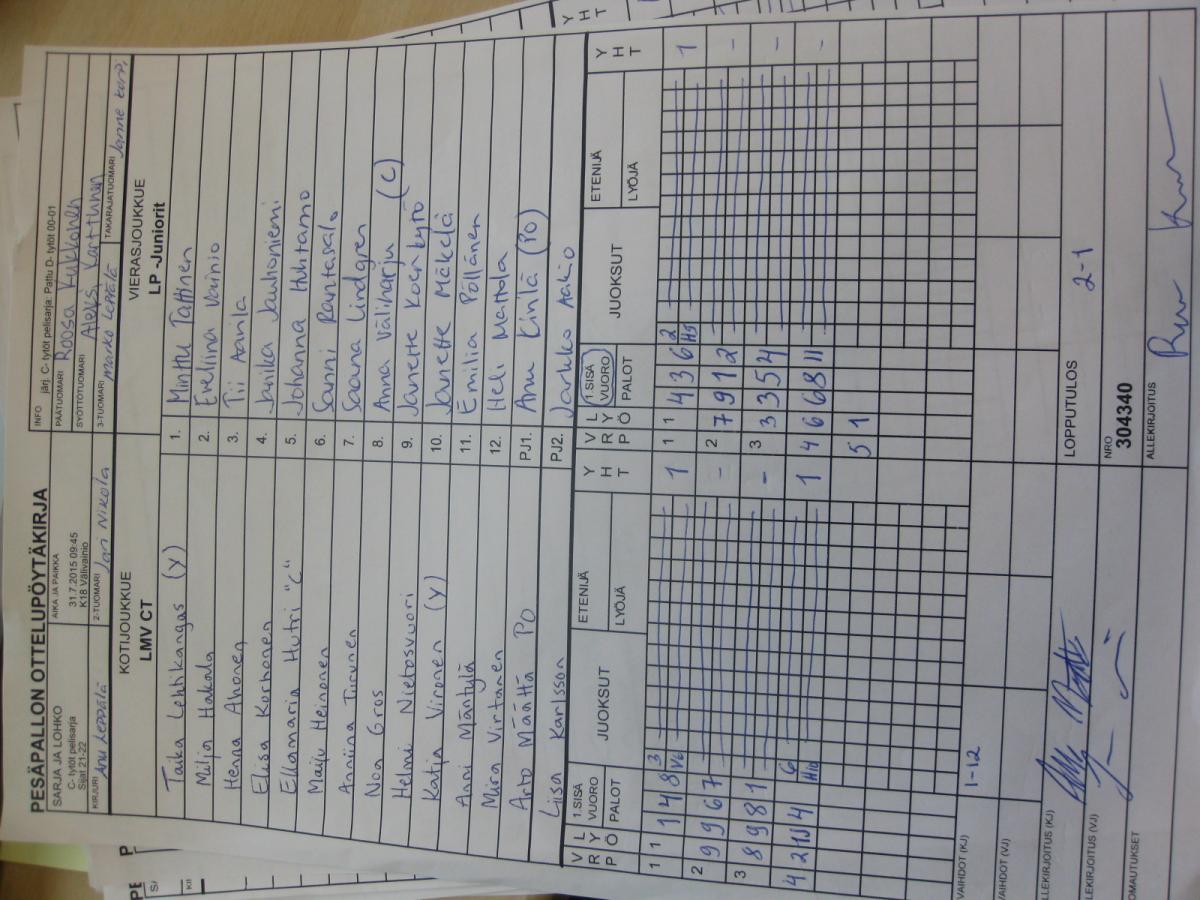 PESÄPALLON OTTELUPÖYTÄKIRJA
SARJA JA LOHKO
C- tytöt pelisarja
Sijat 21-22
AIKA JA PAIKKA
31.7.2015 09:45
K18 Välivainio
INFO järj. C- tytöt pelisarja: Pattu D- tytöt 00-01
PÄÄTUOMARI Roosa Kukkonen
SYÖTTÖTUOMARI Aleksi Karttunen
KIRJURI Anu Leppälä
2-TUOMARI Jari Nikola
3-TUOMARI Marko Leppälä
TAKARAJATUOMARI Janne
KOTIJOUKKUE
LMV CT
VIERASJOUKKUE
LP -Juniorit
Taika Lehtikangas (Y) 1. Minttu Tattinen
Milja Hakala 2. Eveliina Vainio
Henna Ahonen 3. Tii Aanila
Elisa Korhonen 4. Janika Jauhoniemi
Ellamaria Hutri "C" 5. Johanna Huhtamo
Maiju Heinonen 6. Sanni Rantasalo
Anniina Turunen 7. Saana Lindgren
Noa Gros 8. Anna Väliharju (C)
Helmi Nietosvuori 9. Janette
Katja Vironen (Y) 10. Janette Mäkelä
Anni Mäntylä 11. Emilia Pöllänen
Mira Virtanen 12. Heli Mattola
Arto Määttä PO PJ1. Anu Kinilä (PO)
Liisa Karlsson PJ2. Jarkko Aaltio
V R P L Y Ö 1.SISÄ VUORO PALOT JUOKSUT ETENIJÄ LYÖJÄ Y H T V R P L Y Ö 1.SISÄ VUORO PALOT JUOKSUT ETENIJÄ LYÖJÄ Y H T
1 1 1 4 8 3 V6 1 1 1 4 3 6 2 H5 1
2 9 9 6 7 - 2 7 9 1 2 -
3 8 9 8 1 - 3 3 3 5 4 -
4 2 4 6 1 1 4 6 6 8 11 -
5 1
VAIHDOT (KJ) 1-12
VAIHDOT (VJ)
ALLEKIRJOITUS (KJ)
ALLEKIRJOITUS (VJ)
LOPPUTULOS 2-1
HUOMAUTUKSET
NRO
304340
ALLEKIRJOITUS